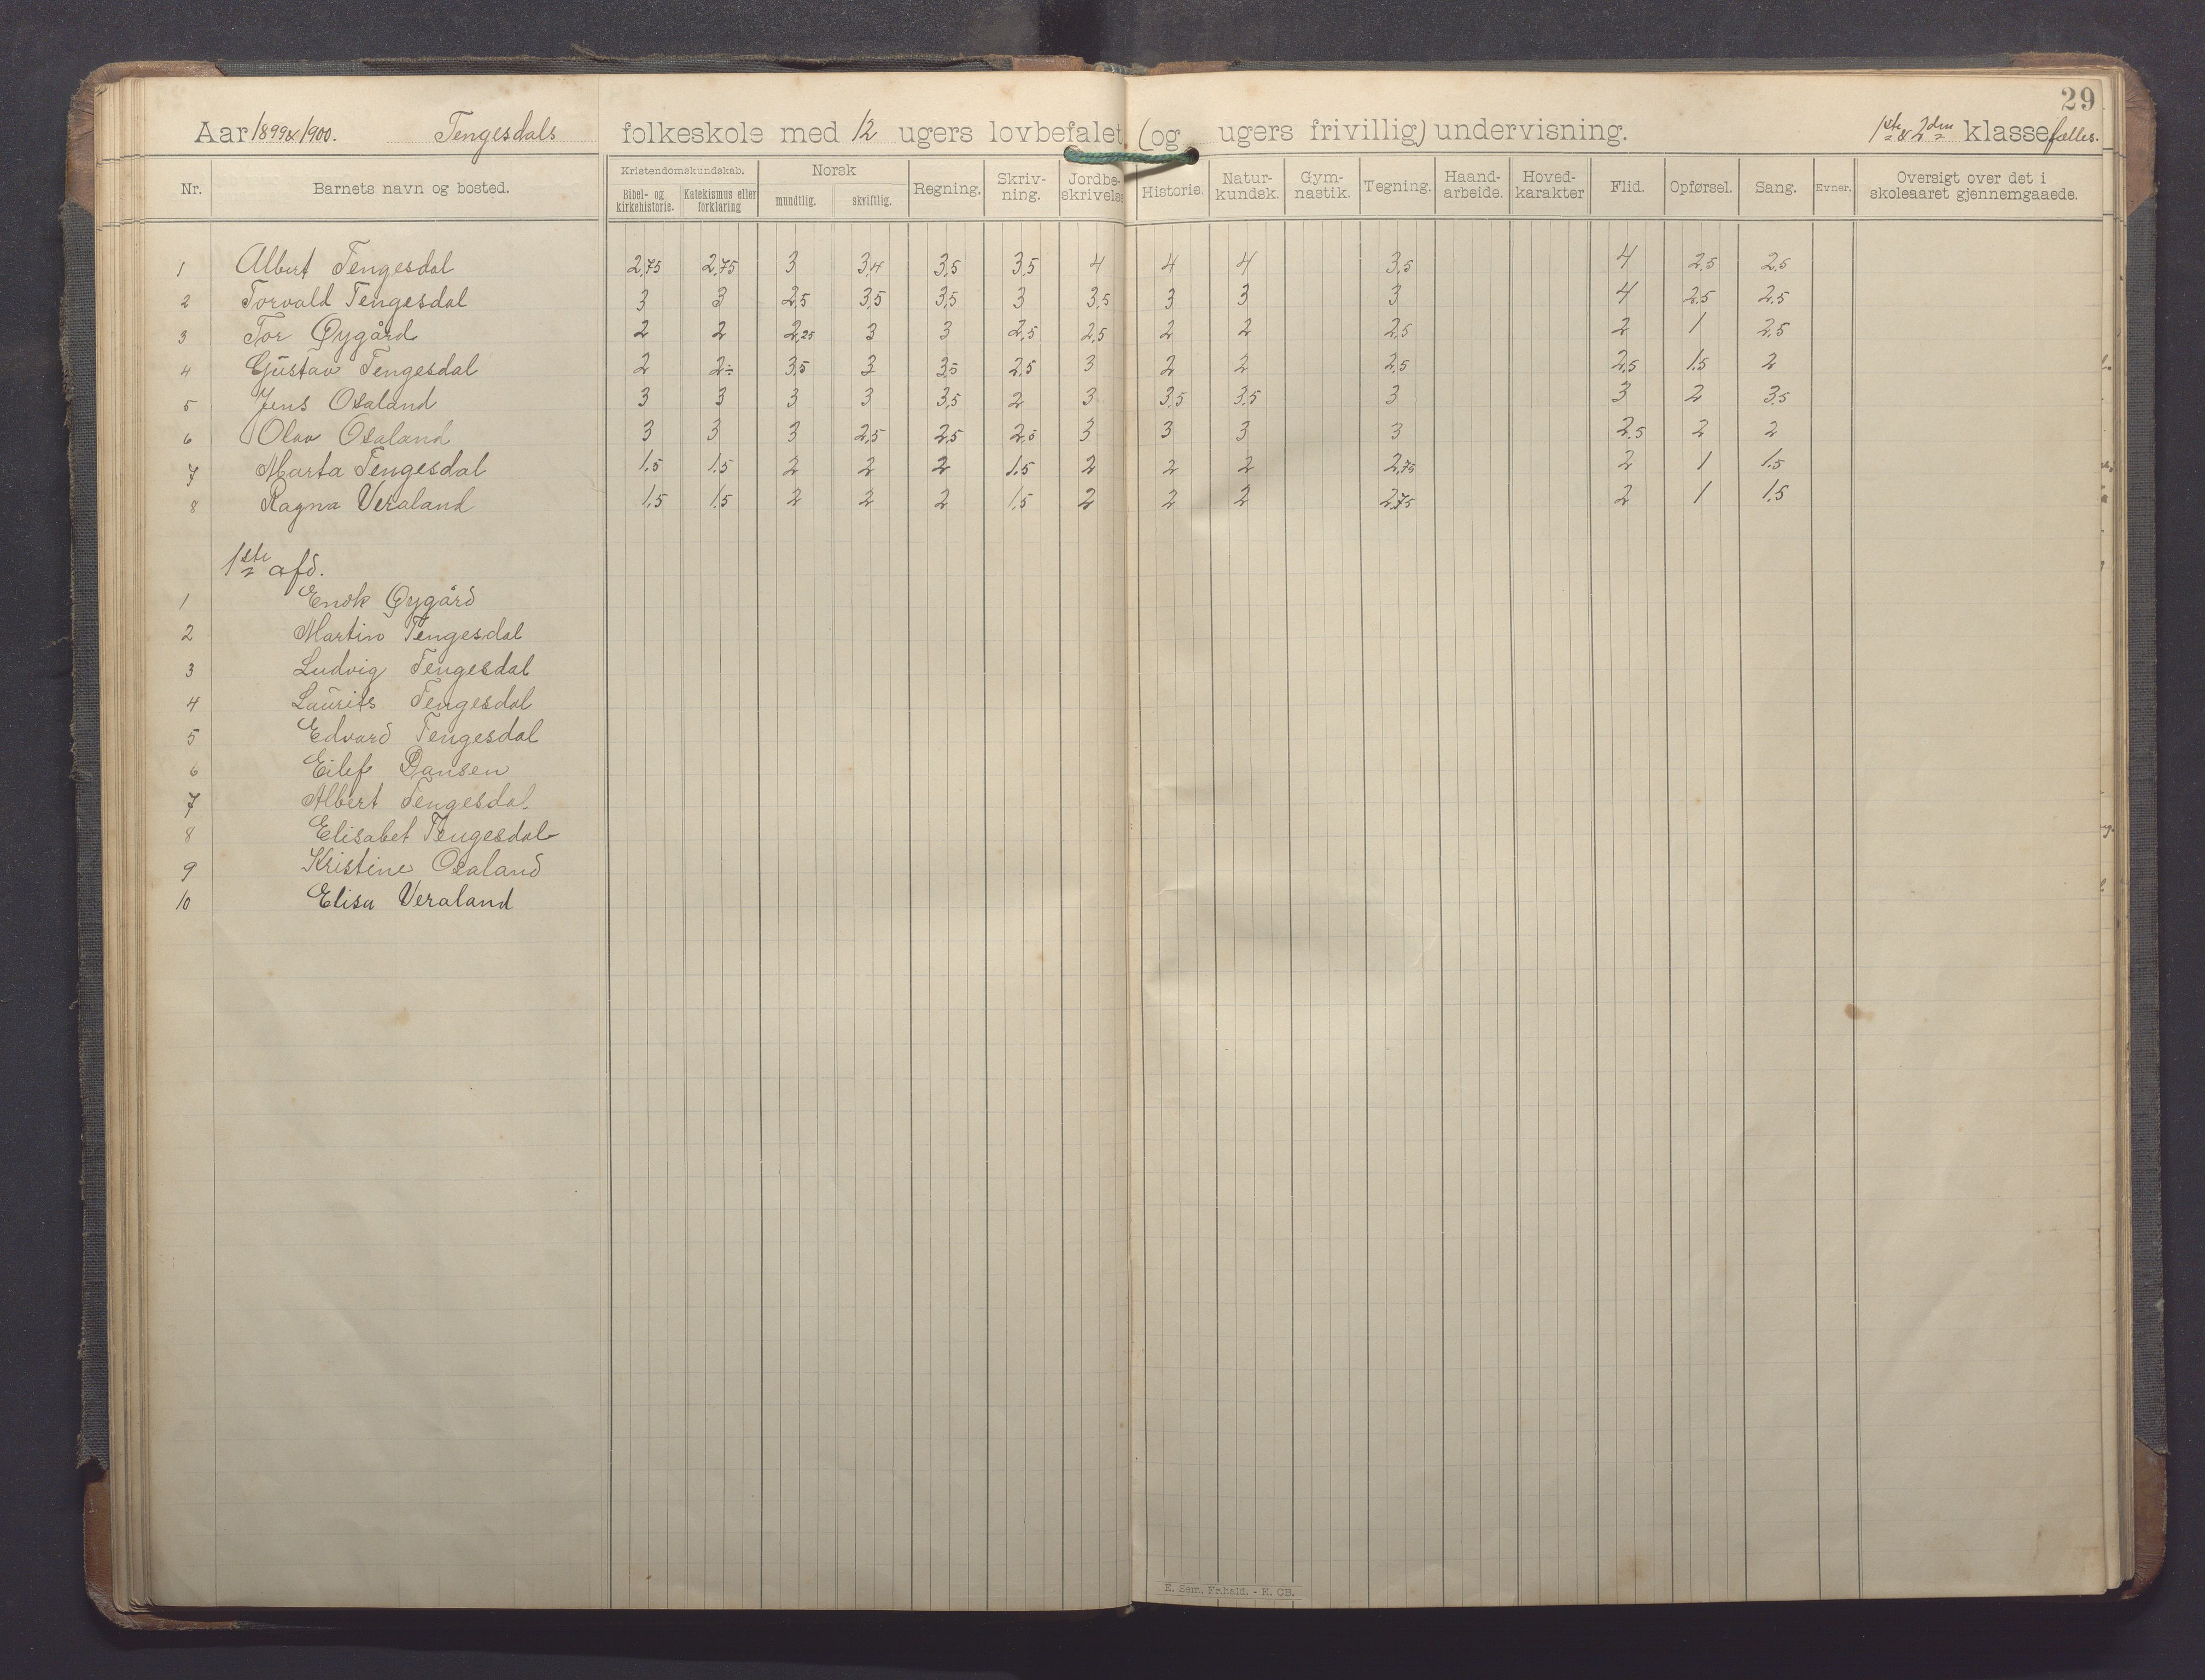 29
Aar 1899 & 1900. Tengesdals folkeskole med 12 ugers lovbefalet (og ugers frivillig) undervisning. 1ste & 2den klasse fælles.
Nr. Barnets navn og bosted. Kristendomskundskab. Bibel- og kirkehistorie. Katekismus eller forklaring Norsk mundtlig. skriftlig. Regning. Skriv-ning. Jordbe-skrivelse Historie. Natur-kundsk. Gym-nastik. Tegning. Haand-arbeide. Hoved-karakter Flid. Opførsel. Sang. Evner. Oversigt over det i skoleaaret gjennemgaaede.
1 Albert Tengesdal 2,75 2,75 3 3,4 3,5 3,5 4 4 4 3,5 4 2,5 2,5
2 Torvald Tengesdal 3 3 2,5 3,5 3,5 3 3,5 3 3 3 4 2,5 2,5
3 Tor Øygård 2 2 2,25 3 3 2,5 2,5 2 2 2,5 2 1 2,5
4 Gustav Tengesdal 2 2÷ 3,5 3 3,5 2,5 3 2 2 2,5 2,5 1,5 2
5 Jens Osaland 3 3 3 3 3,5 2 3 3,5 3,5 3 3 2 3,5
6 Olav Osaland 3 3 3 2,5 2,5 2,5 3 3 3 3 2,5 2 2
7 Marta Tengesdal 1,5 1,5 2 2 2 1,5 2 2 2 2,75 2 1 1,5
8 Ragna Veraland 1,5 1,5 2 2 2 1,5 2 2 2 2,75 2 1 1,5
1ste afd.
1 Enok Øygård
2 Martin Tengesdal
3 Ludvig Tengesdal
4 Laurits Tengesdal
5 Edvard Tengesdal
6 Eilef
7 Albert Tengesdal
8 Elisabet Tengesdal
9 Kristine Osaland
10 Elisa Veraland
E. Sem, Fr.hald. - E. CB.